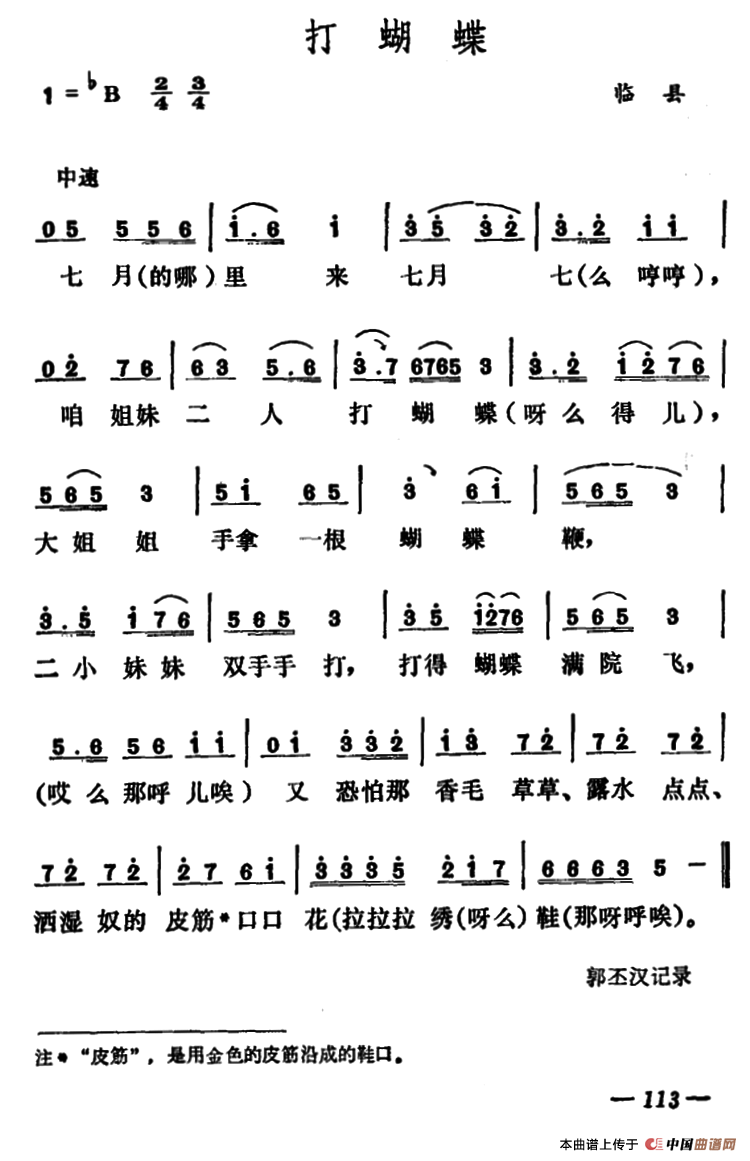 打蝴蝶
1=♭B 2/4 3/4 临县
中速
05 556 | i.6 i | 35 32 | 3.2 ii |
七月(的哪)里 来 七月 七(么 哼哼),
02 76 | 63 5.6 | 3.7 6765 3 | 3.2 i276 |
咱 姐妹 二 人 打 蝴 蝶(呀么得儿),
565 3 | 5i 65 | 3 6i | 565 3 |
大姐 姐 手拿 一根 蝴 蝶 鞭,
3.5 i76 | 565 3 | 35 i276 | 565 3 |
二小 妹妹 双手手 打, 打得 蝴蝶 满院 飞,
5.6 56 ii | 0i 332 | i3 72 | 72 72 |
(哎么 那呼 儿唉) 又 恐怕那 香毛 草草、露水 点点、
72 72 | 27 6i | 3335 2i7 | 6663 5 - ‖
洒湿 奴的 皮筋*口口 花(拉拉拉 绣(呀么)鞋(那呀呼唉)。
郭丕汉记录
注*“皮筋”,是用金色的皮筋沿成的鞋口。
— 113 —
本曲谱上传于 中国曲谱网